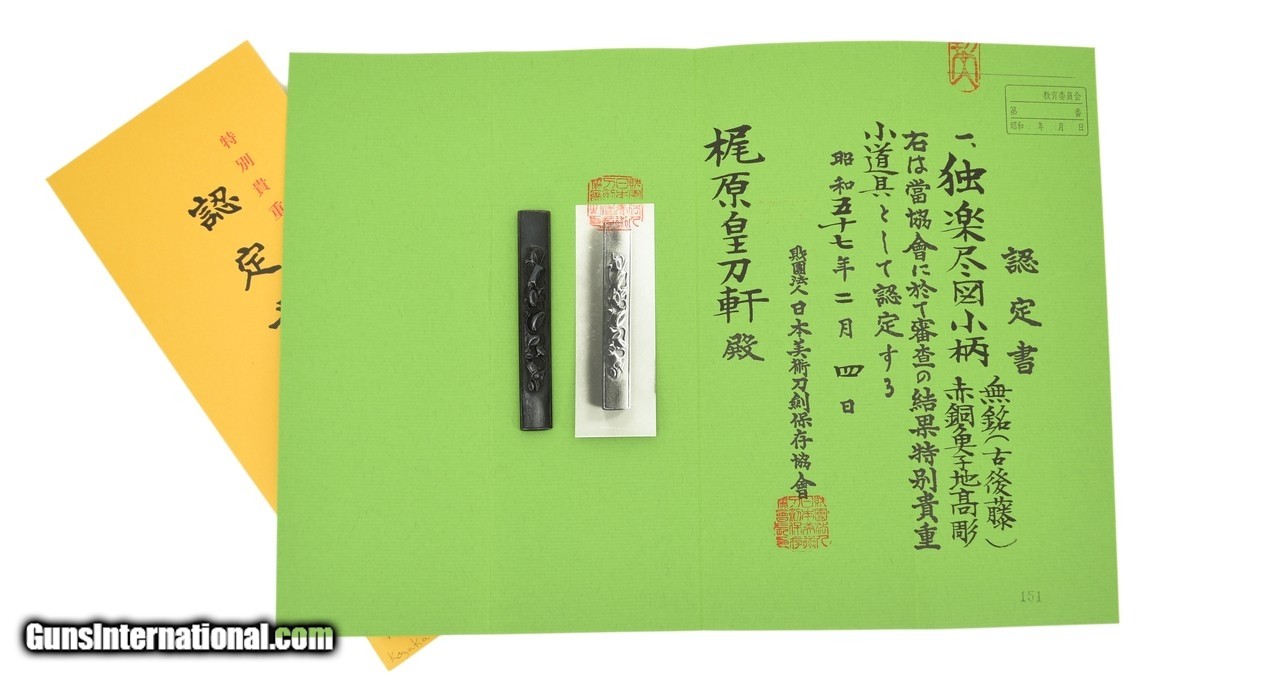 認定書
一、独楽尽図小柄
無銘(古後藤)
赤銅魚子地高彫
右は當協會に於て審査の結果特別貴重
小道具として認定する
昭和五十七年二月四日
財團法人日本美術刀剣保存協會
梶原皇刀軒殿
教育委員会
第 番
昭和 年 月 日
151
特別貴重
認定
GunsInternational.com